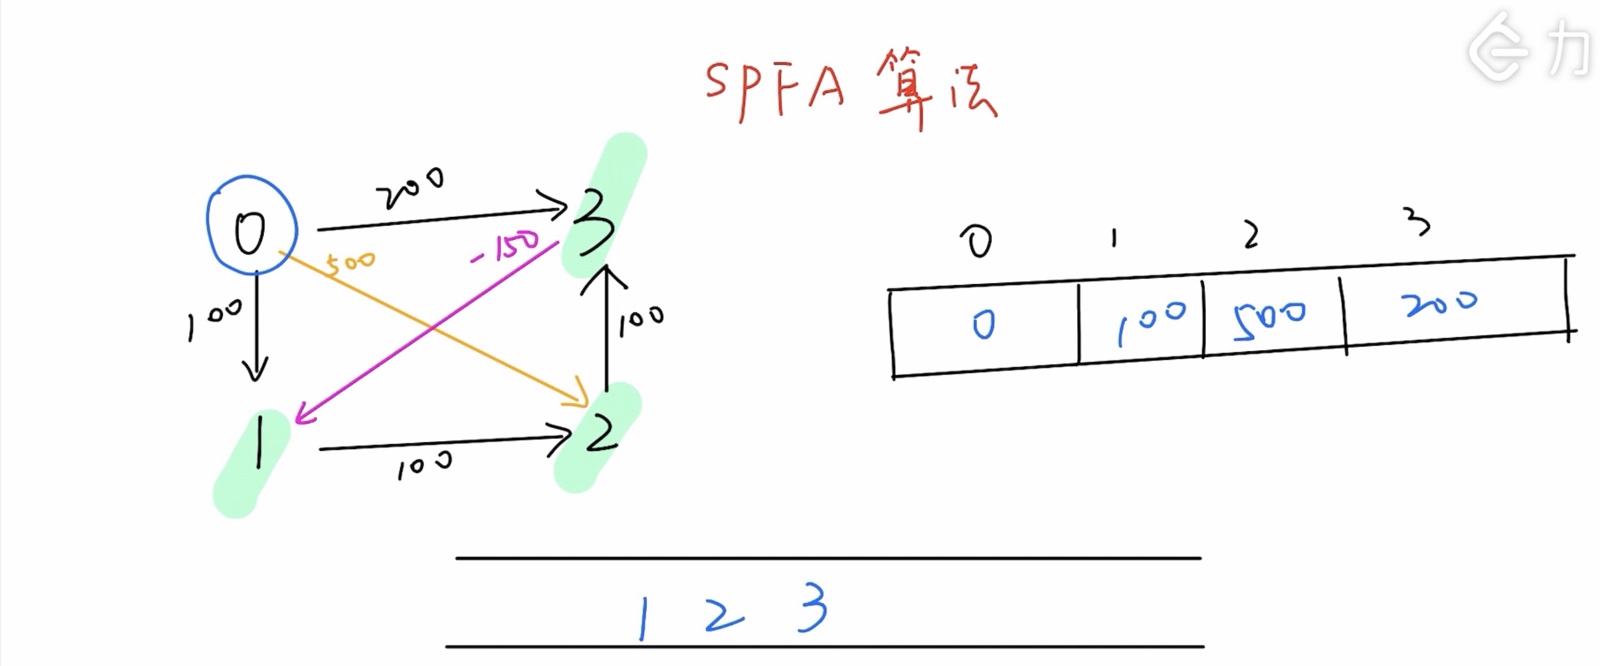 力
SPFA 算法
0
200
3
-150
500
100
100
1
100
2
0 1 2 3
0 100 500 200
1 2 3